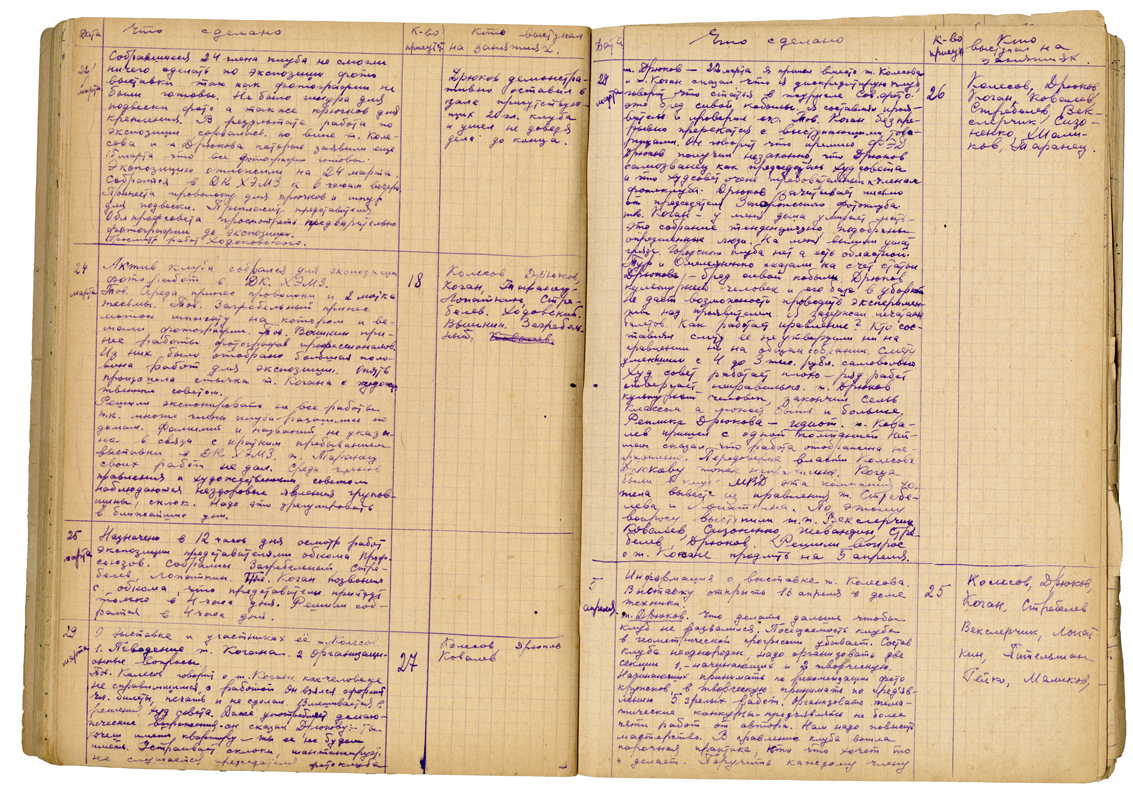 Дата
Что сделано
К-во присут
Кто выступал на занятиях.
22/марта
Собравшиеся 24 члена клуба не смогли
ничего сделать по экспозиции фото
выставки так как фотографии не
были готовы. Не было шнура для
подвески фото а также крючков для
крепления. В результате работа по
экспозиции сорвалась по вине т. Коле-
сова и т. Дрюкова которые заявили еще
марта что все фотографии готовы.
Экспозицию отложили на 24 марта.
Собраться в ДК ХЭМЗ к 6 часам вечера
Принести проволоку для крючков и шнур
для подвески. Пригласить представителя
Облпрофсовета просмотреть предварительно
фотографии до экспозиции.
Просмотр работ Ходоковского.
Дрюков демонстра-
тивно оставил в
зале присутствую-
щих 20 чл. клуба
и ушел не доведя
дела до конца.
24 марта
Актив клуба собрался для экспозиции
фото работ в ДК. ХЭМЗ.
Тов. Середа принес проволоки и 2 мотка
тесьмы. Тов. Загребельный принес
моток шпагату на котором и ве-
шали фотографии. Тов. Вышкин при-
нес работы фотографов профессионалов.
Из них было отобрано большая поло-
вина работ для экспозиции. Опять
произошла стычка т. Когана с художе-
ственным советом.
Решили экспонировать не все работы
т.к. многие члены клуба разошлись по
домам. Фамилии и названий не указы-
на в связи с кратким пребыванием
выставки в ДК ХЭМЗ. т. Маранец
своих работ не дал. Среди членов
правления и художественным советом
наблюдаются нездоровые явления группов-
щины, склок. Надо это урегулировать
в ближайшие дни.
18
Колесов, Дрюков,
Коган, Маранец,
Лопаткин, Стре-
белев, Ходовский.
Вышкин. Загребель-
ный,
25 марта
Назначено в 12 часов дня осмотр работ
экспозиции представителями обкома Проф-
союзов. Собрались Загребельный, Стре-
белев, Лопаткин. Тов. Коган позвонил
с обкома, что представители придут
только в 4 часа дня. Решили соб-
раться в 4 часа дня.
29 марта
О выставке и участниках её т. Колесов
1. Поведение т. Когана. 2 Организаци-
онные вопросы
Тов. Колесов говорит о т. Коган как человеке
не справившимся с работой он взялся оформить
чл. билеты печать и не сделал. Вмешивается в
решения худ совета. Даже употребляет
выражения. он сказал Дрюкову:
имени. Устраивает склоки, шантажирует.
не слушается председателя фотоклуба
27
Колесов, Дрюков
Ковалев
Дата
Что сделано
К-во присут
Кто выступал на занятиях.
29 марта
т. Дрюков – 22 марта я пришел вместо т. Колесова
и т. Коган сказал что я дискредитирую клуб
говорит что статья в журнале Сов. фото.
это бред сивой кобылы, я составил прояв-
витель и проверил его. Тов. Коган беспре-
рывно пререкается с выступающими това-
рищами. Он говорит что премию ФЭД
Дрюков получил незаконно, что Дрюков
самозванец как председатель худсовета
и что худсовет очень требователен к членам
фотоклуба. Дрюков зачитывает письмо
от председателя Запорожского фотоклуба
тов. Коган – у меня дома умирает мать
Это собрание тенденциозно, подобраны
определенные люди. На меня вылили ушат
грязи. Городского клуба нет а есть областной.
сказали на счет статьи
Дрюкова: – бред сивой кобылы. Дрюков
культурный человек и его
не дает возможности проводить эксперимен-
ты над проявителем и задержал печатанье
билетов. Как работает правление? Кто сос-
тавлял смету ее не утвердили ни на
правлении ни на общем собрании. Смету
уменьшили с 4 до 3 тыс. рубл. самовольно
Худ совет работает плохо – ряд работ
отвергает неправильно. т. Дрюков
культурный человек, закончил семь
классов а может быть и больше.
Реплика Дрюкова – идиот. т. Кова-
лев пришел с одной компанией
сказал что работа отобрана не-
Передоверие власти Колесова
Дрюкову тоже неправильно. Когда
были в клубе МВД эта компания хо-
тела вывести из правления т. Стребе-
лева и Лопаткина. По этому
вопросу выступили т.т. Векслерчик
Ковалев, Сизоненко, Стре-
белев, Дрюков. Решили вопрос
о т. Когане продлить на 5 апреля.
26
Колесов, Дрюков
Коган, Ковалев,
Стребелев, Век-
слерчик, Сизо-
ненко, Мали-
ков, Маранец.
5 апреля
Информация о выставке т. Колесова.
Выставку откроем 16 апреля в доме
техники.
т. Дрюков. Что делать дальше чтобы
клуб не развалился. Посещаемость клуба
в геометрической прогрессии убывает. Состав
клуба неоднороден, надо организовать две
секции 1.- начинающие и 2 творческую.
Начинающих принимать по рекомендации фото
кружков, в творческую принимать по предъяв-
лению 5 зрелых работ. Организовать тема-
тические конкурсы предъявлять не более
пяти работ от автора. Нам надо повысить
мастерство. В правление клуба вошла
порочная практика, кто что хочет то
и делает. Поручить каждому члену
25
Колесов, Дрюков,
Коган, Стребелев
Векслерчик, Лопат-
кин, Тительман
Гейко, Малеков,